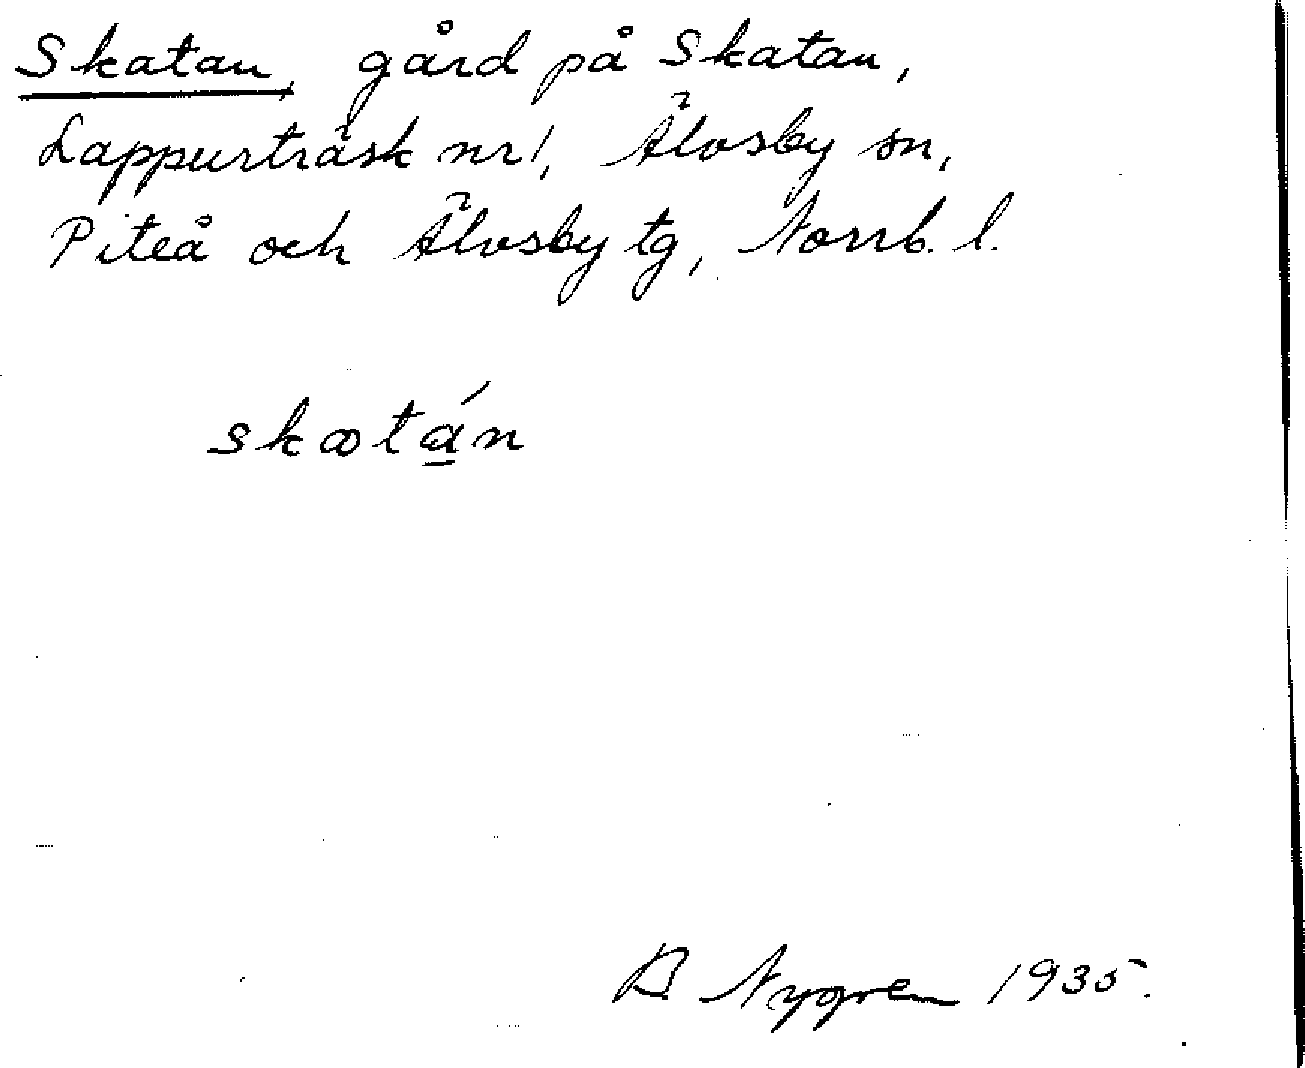 Skatan, gård på Skatan,
Lappurträsk nr 1, Älvsby sn,
Piteå och Älvsby tg, Norrb. l.
skωtá̱n
B Nygren 1935.